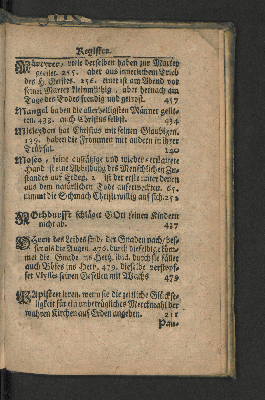 Register.
Märtyrer, viele derselben haben zur Marter
geeilet. 255. aber aus innerlichem Trieb
des H. Geistes. 256. einer ist am Abend vor
seiner Marter kleinmüthig, aber hernach am
Tage des Todes freudig und getrost. 457
Mangel haben die allerheiligsten Männer gelit-
ten. 433. auch Christus selbst. 434
Mitleyden hat Christus mit seinen Glaubigen.
139. haben die Frommen mit andern in ihrer
Trübsal. 140
Moses, seine aussätzige und wieder gereinigte
Hand ist eine Abbildung des Menschlichen Zu-
standes auf Erden. ist der erste unter denen
aus dem natürlichen Tode auferweckten. 65.
nimmt die Schmach Christi willig auf sich. 25
Nothdurfft schläget GOtt seinen Kindern
nicht ab. 437
Ohren des Leibes sind, der Gnaden nach, bes-
ser als die Augen. 476. durch dieselbe kom-
met die Gnade ins Hertz. ibid. durch sie fället
auch Böses ins Hertz. 479. dieselbe verstopf-
fet Ulysses seinen Gesellen mit Wachs 479
Papisten leren, wenn sie die zeitliche Glückse-
ligkeit für ein unbetrügliches Merckmahl der
wahren Kirchen auf Erden angeben. 211
Pau-